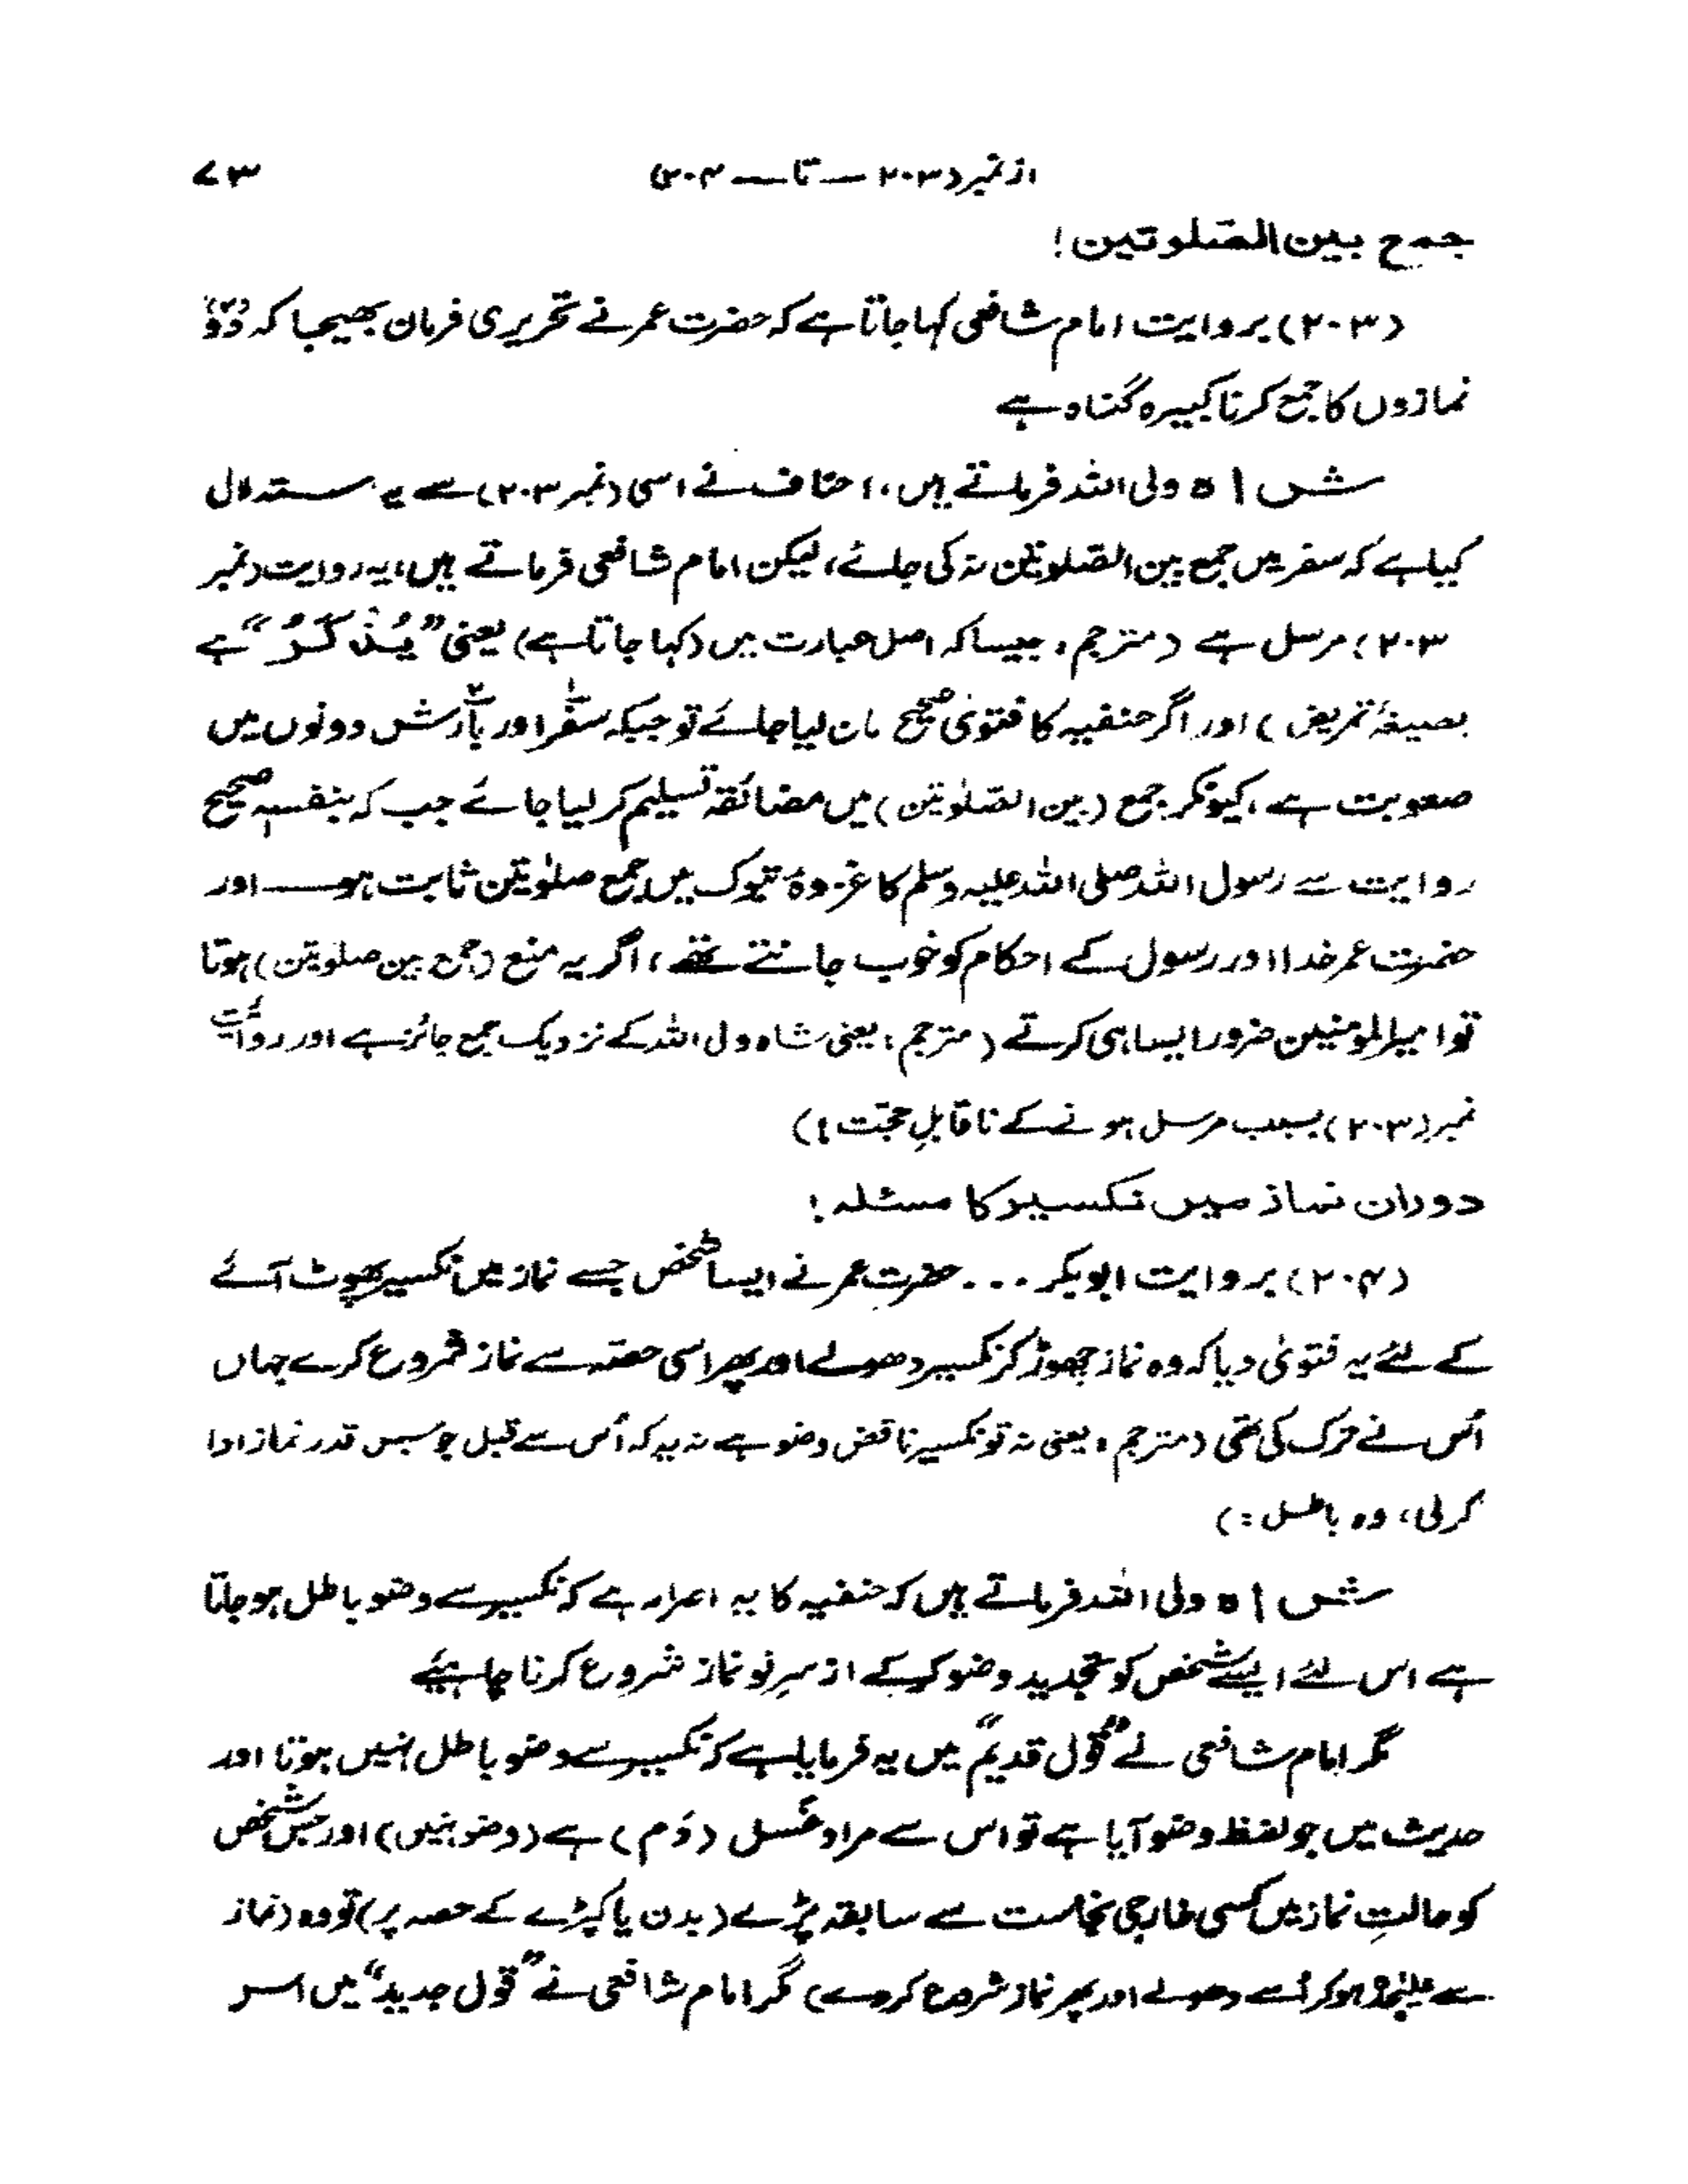 از نمبر (۲۰۳ — تا — ۲۰۴) ۷۳
جمع بین الصّلوتین!
(۲۰۳) بروایت امام شافعی کہا جاتا ہے کہ حضرت عمر نے تحریری فرمان بھیجا کہ دوؔ
نمازوں کا جمع کرنا کبیرہ گناہ ہے
شاہ ولی اللہ فرماتے ہیں، احناف نے اسی (نمبر ۲۰۳) سے یہ استدلال
کیا ہے کہ سفر میں جمع بین الصّلوتین نہ کی جائے، لیکن امام شافعی فرماتے ہیں، یہ روایت (نمبر
۲۰۳) مرسل ہے (مترجم، جیسا کہ اصل عبارت میں (کہا جاتا ہے) یعنی ”یُذْکَرُ“ ہے
بصیغۂ تمریض) اور اگر حنفیہ کا فتویٰ صحیح مان لیا جائے تو جبکہ سفر۱ اور بارش۲ دونوں میں
صعوبت ہے، کیونکر جمع (بین الصّلوٰتین) میں مضائقہ تسلیم کر لیا جائے جب کہ بنفسہٖ صحیح
روایت سے رسول اللہ صلی اللہ علیہ وسلم کا غزوۂ تبوک میں جمع صلوٰتین ثابت ہو — اور
حضرت عمر خدا اور رسول کے احکام کو خوب جانتے تھے، اگر یہ منع (جمع بین صلوتین) ہوتا
تو امیرالمومنین ضرور ایسا ہی کرتے (مترجم: یعنی شاہ ولی اللہ کے نزدیک جمع جائز ہے اور روایت
نمبر (۲۰۳) بسبب مرسل ہونے کے ناقابلِ حجّت!)
دوران نماز میں نکسیر کا مسئلہ!
(۲۰۴) بروایت ابوبکر ... حضرت عمر نے ایسا شخص جسے نماز میں نکسیر پھوٹ آئے
کے لئے یہ فتویٰ دیا کہ وہ نماز چھوڑ کر نکسیر دھولے اور پھر اسی حصّہ سے نماز شروع کرے جہاں
اُس نے ترک کی تھی (مترجم، یعنی نہ تو نکسیر ناقض وضو ہے نہ یہ کہ اُس سے قبل جو جس قدر نماز ادا
کرلی، وہ باطل :)
شاہ ولی اللہ فرماتے ہیں کہ حنفیہ کا یہ اصرار ہے کہ نکسیر سے وضو باطل ہو جاتا
ہے اس لئے ایسے شخص کو تجدید وضو کرکے از سرِ نو نماز شروع کرنا چاہیئے
مگر امام شافعی نے ”قول قدیم“ میں یہ فرمایا ہے کہ نکسیر سے وضو باطل نہیں ہوتا اور
حدیث میں جو لفظ وضو آیا ہے تو اس سے مراد غَسل (دَم) ہے (وضو نہیں) اور جس شخص
کو حالتِ نماز میں کسی خارجی نجاست سے سابقہ پڑے (بدن یا کپڑے کے حصہ پر) تو وہ (نماز
سے علیٰحدہ ہوکر اُسے دھولے اور پھر نماز شروع کردے) مگر امام شافعی نے ”قول جدید“ میں اس